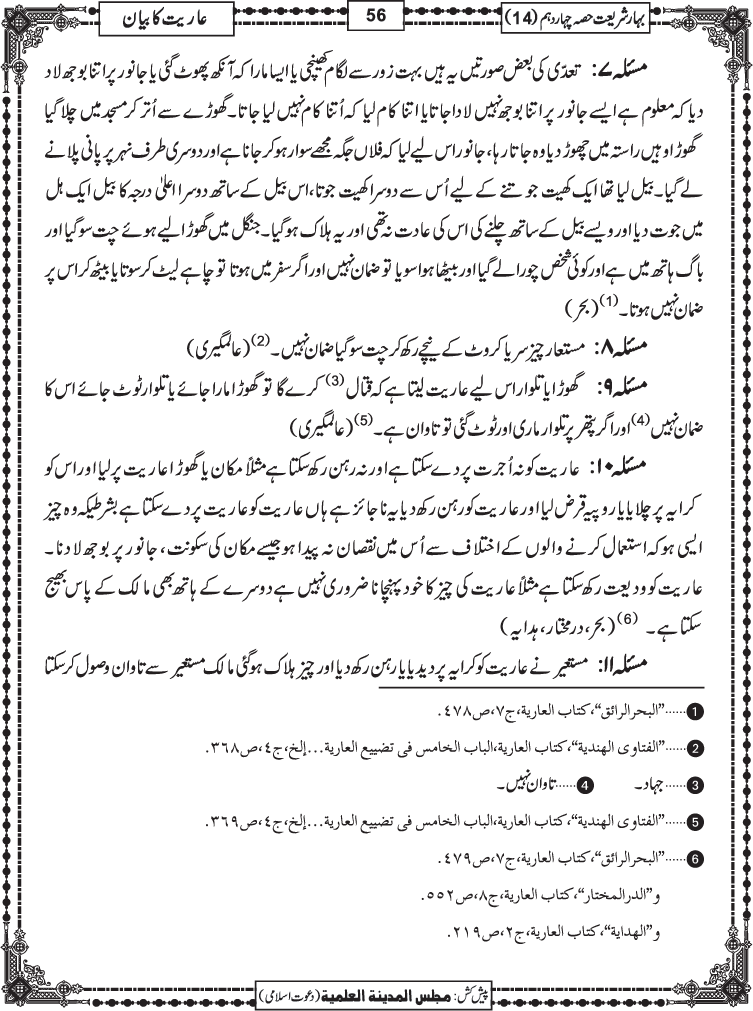 بہار شریعت حصہ چہار دہم (14)
56
عاریت کا بیان
مسئلہ ۷: تعدّی کی بعض صورتیں یہ ہیں بہت زور سے لگام کھینچی یا ایسا مارا کہ آنکھ پھوٹ گئی یا جانور پر اتنا بوجھ لاد
دیا کہ معلوم ہے ایسے جانور پر اتنا بوجھ نہیں لادا جاتا یا اتنا کام لیا کہ اُتنا کام نہیں لیا جاتا۔ گھوڑے سے اُتر کر مسجد میں چلا گیا
گھوڑا وہیں راستہ میں چھوڑ دیا وہ جاتا رہا، جانور اس لیے لیا کہ فلاں جگہ مجھے سوار ہو کر جانا ہے اور دوسری طرف نہر پر پانی پلانے
لے گیا۔ بیل لیا تھا ایک کھیت جوتنے کے لیے اُس سے دوسرا کھیت جوتا، اس بیل کے ساتھ دوسرا اعلیٰ درجہ کا بیل ایک ہل
میں جوت دیا اور ویسے بیل کے ساتھ چلنے کی اس کی عادت نہ تھی اور یہ ہلاک ہو گیا۔ جنگل میں گھوڑا لیے ہوئے چت سو گیا اور
باگ ہاتھ میں ہے اور کوئی شخص چورا لے گیا اور بیٹھا ہوا سویا تو ضمان نہیں اور اگر سفر میں ہوتا تو چاہے لیٹ کر سوتا یا بیٹھ کر اس پر
ضمان نہیں ہوتا۔(1) (بحر)
مسئلہ ۸: مستعار چیز سر یا کروٹ کے نیچے رکھ کر چت سو گیا ضمان نہیں۔(2) (عالمگیری)
مسئلہ ۹: گھوڑا یا تلوار اس لیے عاریت لیتا ہے کہ قتال (3) کرے گا تو گھوڑا مارا جائے یا تلوار ٹوٹ جائے اس کا
ضمان نہیں (4) اور اگر پتھر پر تلوار ماری اور ٹوٹ گئی تو تاوان ہے۔(5) (عالمگیری)
مسئلہ ۱۰: عاریت کو نہ اُجرت پر دے سکتا ہے اور نہ رہن رکھ سکتا ہے مثلاً مکان یا گھوڑا عاریت پر لیا اور اس کو
کرایہ پر چلایا یا روپیہ قرض لیا اور عاریت کو رہن رکھ دیا یہ ناجائز ہے ہاں عاریت کو عاریت پر دے سکتا ہے بشرطیکہ وہ چیز
ایسی ہو کہ استعمال کرنے والوں کے اختلاف سے اُس میں نقصان نہ پیدا ہو جیسے مکان کی سکونت، جانور پر بوجھ لادنا۔
عاریت کو ودیعت رکھ سکتا ہے مثلاً عاریت کی چیز کا خود پہنچانا ضروری نہیں ہے دوسرے کے ہاتھ بھی مالک کے پاس بھیج
سکتا ہے۔ (6) (بحر، درمختار، ہدایہ)
مسئلہ ۱۱: مستعیر نے عاریت کو کرایہ پر دیدیا یا رہن رکھ دیا اور چیز ہلاک ہو گئی مالک مستعیر سے تاوان وصول کر سکتا
1......"البحر الرائق"، کتاب العاریة، ج۷، ص۴۷۸.
2......"الفتاوی الھندیة"، کتاب العاریة، الباب الخامس فی تضییع العاریة...إلخ، ج٤، ص۳٦۸.
3......جہاد۔ 4......تاوان نہیں۔
5......"الفتاوی الھندیة"، کتاب العاریة، الباب الخامس فی تضییع العاریة...إلخ، ج٤، ص۳٦۹.
6......"البحر الرائق"، کتاب العاریة، ج۷، ص۴۷۹.
و"الدرالمختار"، کتاب العاریة، ج۸، ص۵۵۲.
و"الھدایة"، کتاب العاریة، ج۲، ص۲۱۹.
پیش کش: مجلس المدینة العلمیة (دعوت اسلامی)